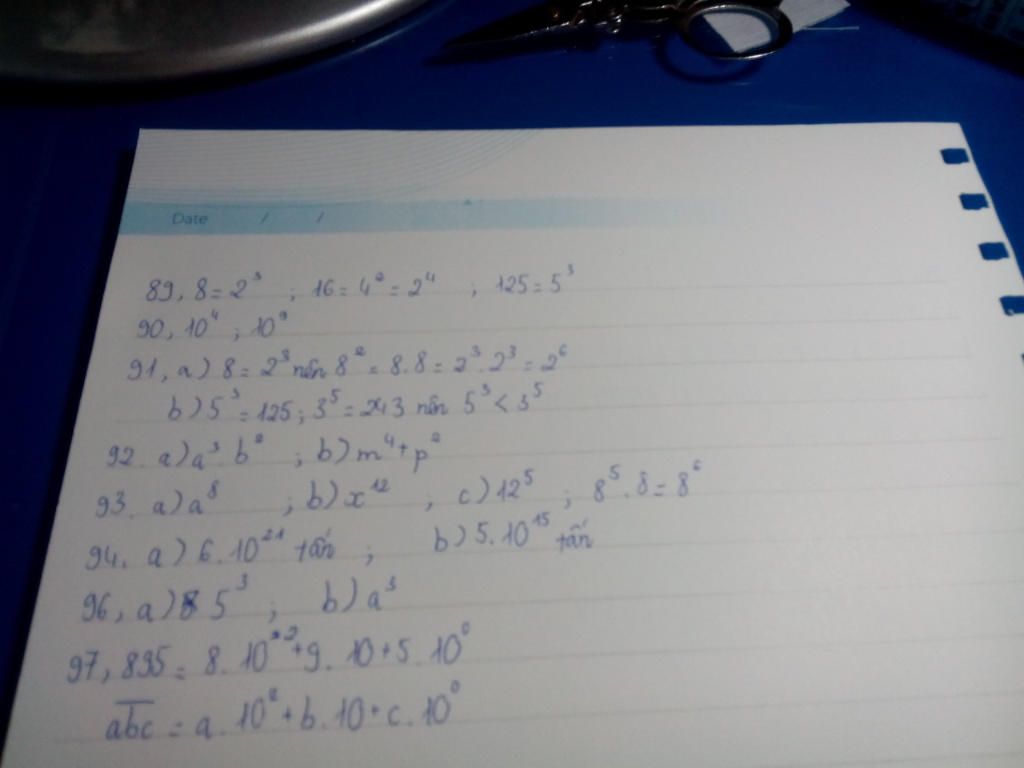 Date / /
89, 8 = 2³ ; 16 = 4² = 2⁴ ; 125 = 5³
90, 10⁴ ; 10⁹
91, a) 8 = 2³ nên 8² = 8.8 = 2³.2³ = 2⁶
b) 5³ = 125 ; 3⁵ = 243 nên 5³ < 3⁵
92. a) a³.b² ; b) m⁴ + p²
93. a) a⁸ ; b) x¹² ; c) 12⁵ ; 8⁵.8 = 8⁶
94. a) 6.10²¹ tấn ; b) 5.10¹⁵ tấn
96, a) 5³ ; b) a³
97, 895 = 8.10² + 9.10 + 5.10⁰
a̅b̅c̅ = a.10² + b.10 + c.10⁰